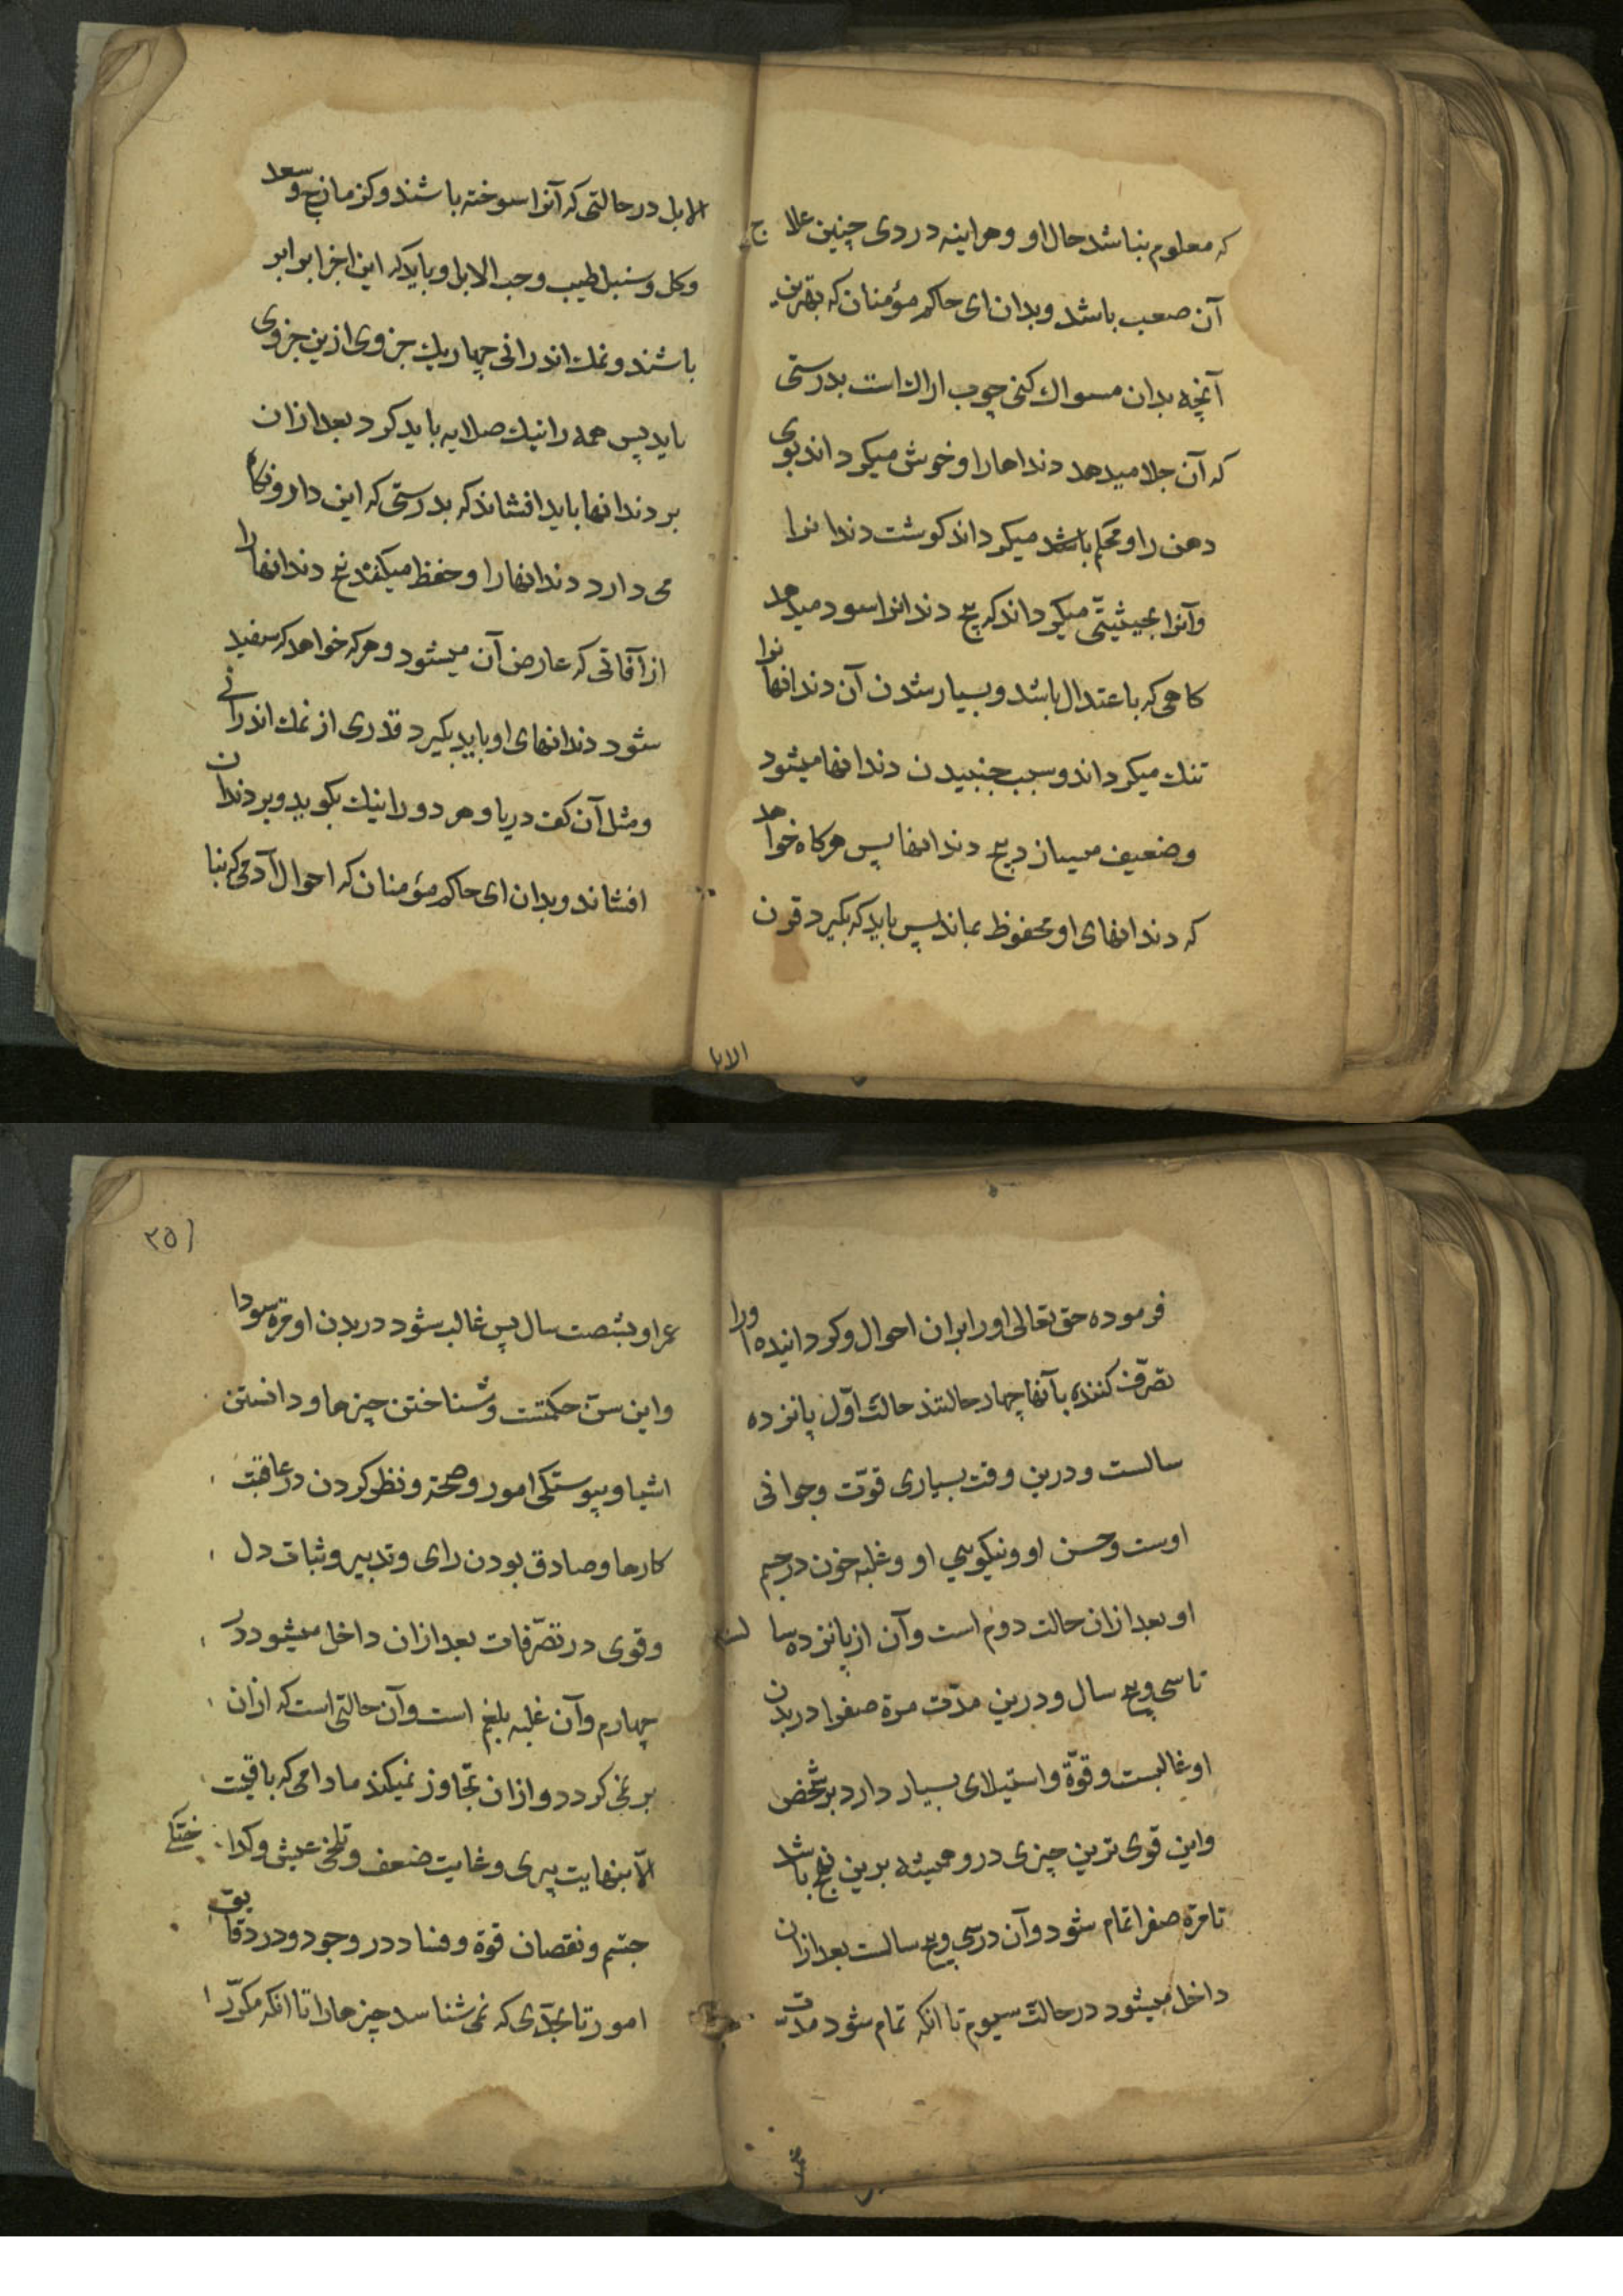 که معلوم نباشد حال او و هر اینه در دی چنین علاج
آن صعب باشد و بدان ای حاکم مؤمنان که بهترین
آنچه بدان مسواک کنی چوب اراک است بدرستی
که آن جلا میدهد دنداها را و خوش میکرداند بوی
دهن را و محکم باشد میکرداند کوشت دندانرا
و آنرا بحیثیتی میکرداند که بیخ دندانرا سود میدهد
کاهی که باعتدال باشد و بسیار شدن آن دندانهانرا
تنک میکرداند و سبب جنبیدن دندانها میشود
و ضعیف میسازد بیخ دندانها پس هرکاه خواهد
که دندانهای او محفوظ بماند پس باید که بکیرد قرن
الابل
الابل در حالتی که آنرا سوخته باشند و کزمازج و سعد
و کل و سنبل طیب و حب الابل و باید که این اجزا برابر
باشند و نمک اندرانی چهار یک جزوی ازین جزوی
باید پس همه را نیک صلایه باید کرد بعد ازان
بر دندانها باید افشاند که بدرستی که این دارو نکاه
می دارد دندانها را و حفظ میکند بیخ دندانها را
از آفاتی که عارض آن میشود و هر که خواهد که سفید
شود دندانهای او باید بکیرد قدری از نمک اندرانی
و مثل آن کف دریا و هر دو را نیک بکوبد و بر دندان
افشاند و بدان ای حاکم مؤمنان که احوال آدمی که بنا
فرموده حق تعالی او را بران احوال و کردانیده او را
تصرف کننده بآنها چهار حالتند حالت اول پانزده
سالست و درین وقت بسیاری قوت و جوانی
اوست و حسن او و نیکویی او و غلبه خون در جسم
او بعد ازان حالت دوم است و آن از پانزده سالست
تا سی و پنج سال و درین مدت مرة صفرا در بدن
او غالبست و قوة و استیلای بسیار دارد بر شخص
و این قوی ترین چیزی درو همیشه برین نهج باشد
تا مرة صفرا تمام شود و آن در سی و پنج سالست بعد ازان
داخل میشود در حالت سیوم تا انکه تمام شود مدت
عمر
۲۵۱
عمر او بشصت سال پس غالب شود در بدن او مرة سودا
و این سن حکمتست و شناختن چیزها و دانستن
اشیا و پیوستکی امور و صحة و نظر کردن در عاقبت
کارها و صادق بودن رای و تدبیر و ثبات دل
و قوی در تصرفات بعد ازان داخل میشود در
چهارم و آن غلبه بلغم است و آن حالتی است که ازان
بر نمی کردد و ازان تجاوز نمیکند مادامی که باقیت
الا بنهایت پیری و غایت ضعف و تلخی عیش و کداختکی
جسم و نقصان قوة و فساد در وجود و در دقایق
امور تا بحدی که نمی شناسد چیزها را تا انکه مکرر